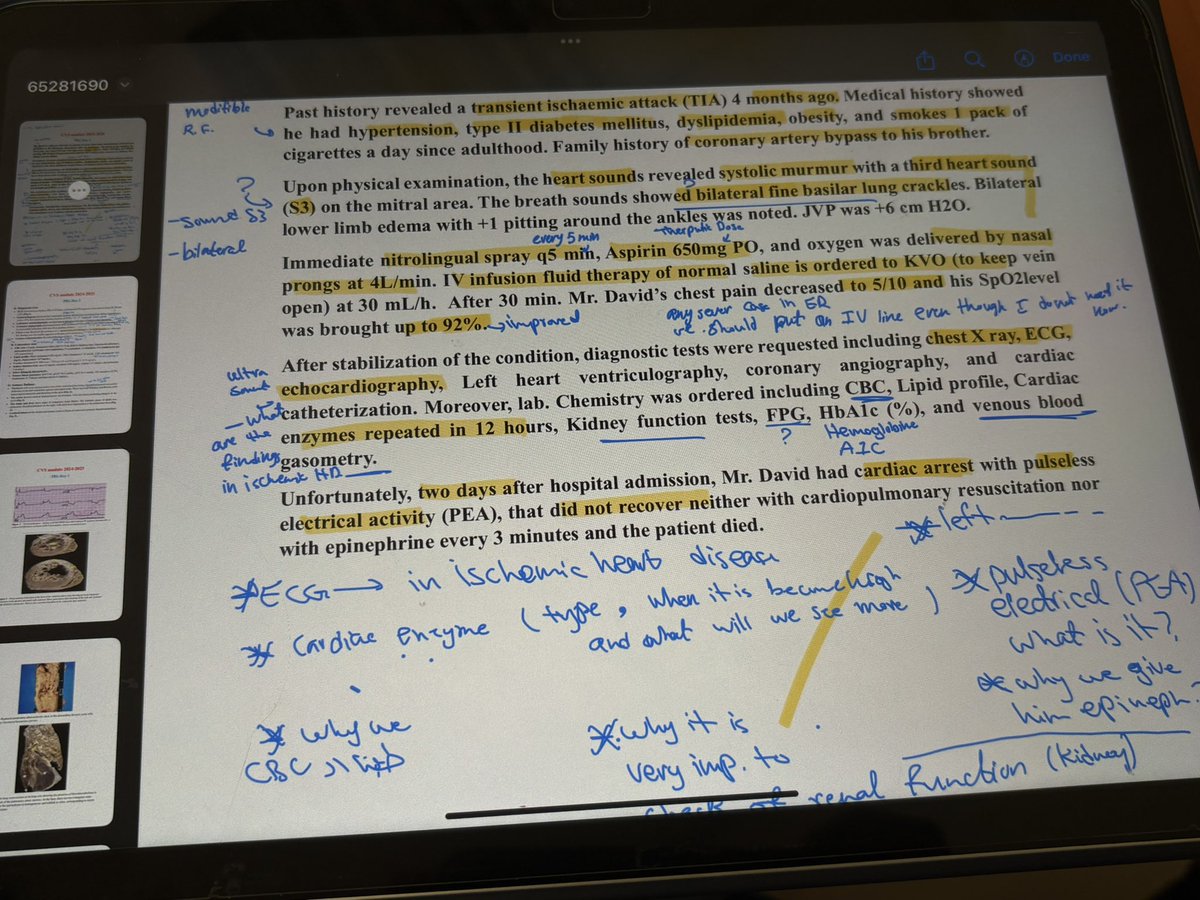 65281690
Done
modifible
R.F.
Past history revealed a transient ischaemic attack (TIA) 4 months ago. Medical history showed
he had hypertension, type II diabetes mellitus, dyslipidemia, obesity, and smokes 1 pack of
cigarettes a day since adulthood. Family history of coronary artery bypass to his brother.
?
- Sound S3
- bilateral
Upon physical examination, the heart sounds revealed systolic murmur with a third heart sound
(S3) on the mitral area. The breath sounds showed bilateral fine basilar lung crackles. Bilateral
lower limb edema with +1 pitting around the ankles was noted. JVP was +6 cm H2O.
every 5 min
therputic Dose
Immediate nitrolingual spray q5 min, Aspirin 650mg PO, and oxygen was delivered by nasal
prongs at 4L/min. IV infusion fluid therapy of normal saline is ordered to KVO (to keep vein
open) at 30 mL/h. After 30 min. Mr. David's chest pain decreased to 5/10 and his SpO2level
was brought up to 92%.
improved
any sever case in ER
we should put an IV line even though I do not need it
now.
After stabilization of the condition, diagnostic tests were requested including chest X ray, ECG,
echocardiography, Left heart ventriculography, coronary angiography, and cardiac
catheterization. Moreover, lab. Chemistry was ordered including CBC, Lipid profile, Cardiac
enzymes repeated in 12 hours, Kidney function tests, FPG, HbA1c (%), and venous blood
gasometry.
ultra
sound
- what
are the
findings
in ischemic HD
?
Hemoglobine
A1C
Unfortunately, two days after hospital admission, Mr. David had cardiac arrest with pulseless
electrical activity (PEA), that did not recover neither with cardiopulmonary resuscitation nor
with epinephrine every 3 minutes and the patient died.
left
ECG → in ischemic heart disease
Cardiac enzyme (type, when it is became high
and what will we see more)
pulseless
electrical (PEA)
what is it?
why we give
him epineph
why we
CBC
why it is
very imp. to
check of renal function (kidney)
CVS module 2024-2025